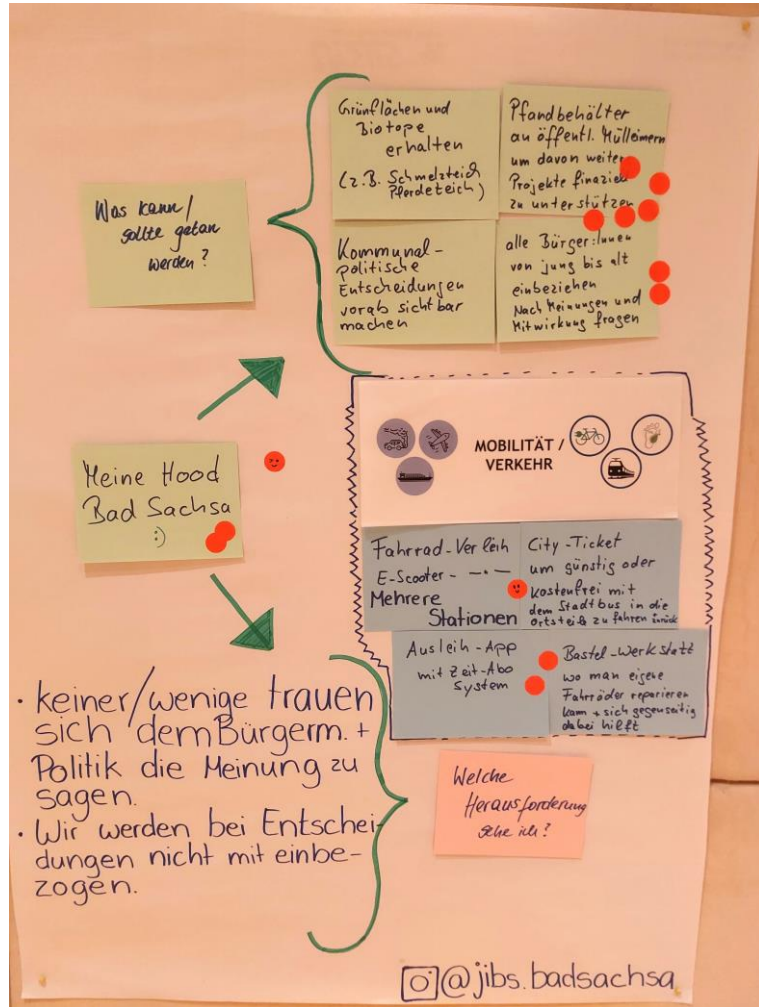 Was kann/
sollte getan
werden?
Grünflächen und
Biotope
erhalten
(z.B. Schmelzteich
Pferdeteich)
Pfandbehälter
an öffentl. Mülleimern
um davon weitere
Projekte finaziell
zu unterstützen
Kommunal-
politische
Entscheidungen
vorab sichtbar
machen
alle Bürger:Innen
von jung bis alt
einbeziehen
Nach Meinungen und
Mitwirkung fragen
Meine Hood
Bad Sachsa
:)
MOBILITÄT /
VERKEHR
Fahrrad-Verleih
E-Scooter- —·—
Mehrere
Stationen
City-Ticket
um günstig oder
kostenfrei mit
dem Stadtbus in die
Ortsteile zu fahren + zurück
Ausleih-App
mit Zeit-Abo
System
Bastel-Werkstatt
wo man eigene
Fahrräder reparieren
kann + sich gegenseitig
dabei hilft
· keiner/wenige trauen
sich dem Bürgerm. +
Politik die Meinung zu
sagen.
· Wir werden bei Entschei-
dungen nicht mit einbe-
zogen.
Welche
Herausforderung
sehe ich?
@jibs.badsachsa